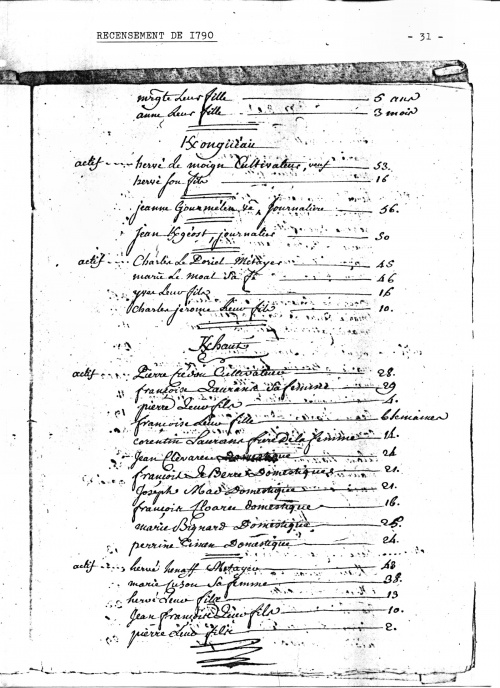 RECENSEMENT DE 1790
- 31 -
mrgte Leur fille 5 ans
anne Leur fille 3 mois
Konguéau
actif hervé Le moign Cultivateur, veuf 53.
hervé son fils 16
jeanne Gourmélen Ve journalière 56.
jean Kgéost journalier 50
actif Charles Le Doriel Métayer 45
marie Le moal Sa fe 46
yves Leur fils 16
Charles jérome Leur fils 10.
Khaut
actif Pierre Cultivateur 28.
françoise Laurans Sa femme 29
pierre Leur fils 4.
françoise Leur fille 6 semaines
corentin Laurans frère de la femme 14.
Jean 24
françois Le Berre Domestique 21.
Joseph Mao Domestique 21.
françois domestique 16.
marie Bignard Domestique 26.
perrine Simon Domestique 24.
actif hervé henaff Metayer 48
marie Sa femme 38.
hervé Leur fils 13
Jean françois Leur fils 10.
pierre Leur fils 2.